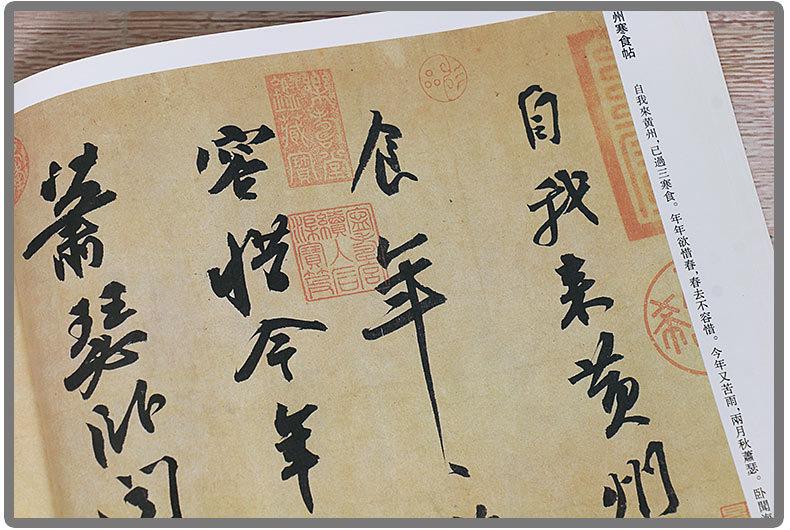 州寒食帖
自我來黃州，已過三寒食。年年欲惜春，春去不容惜。今年又苦雨，兩月秋蕭瑟。卧聞
自我來黃州
食年
容惜今年
蕭瑟卧聞